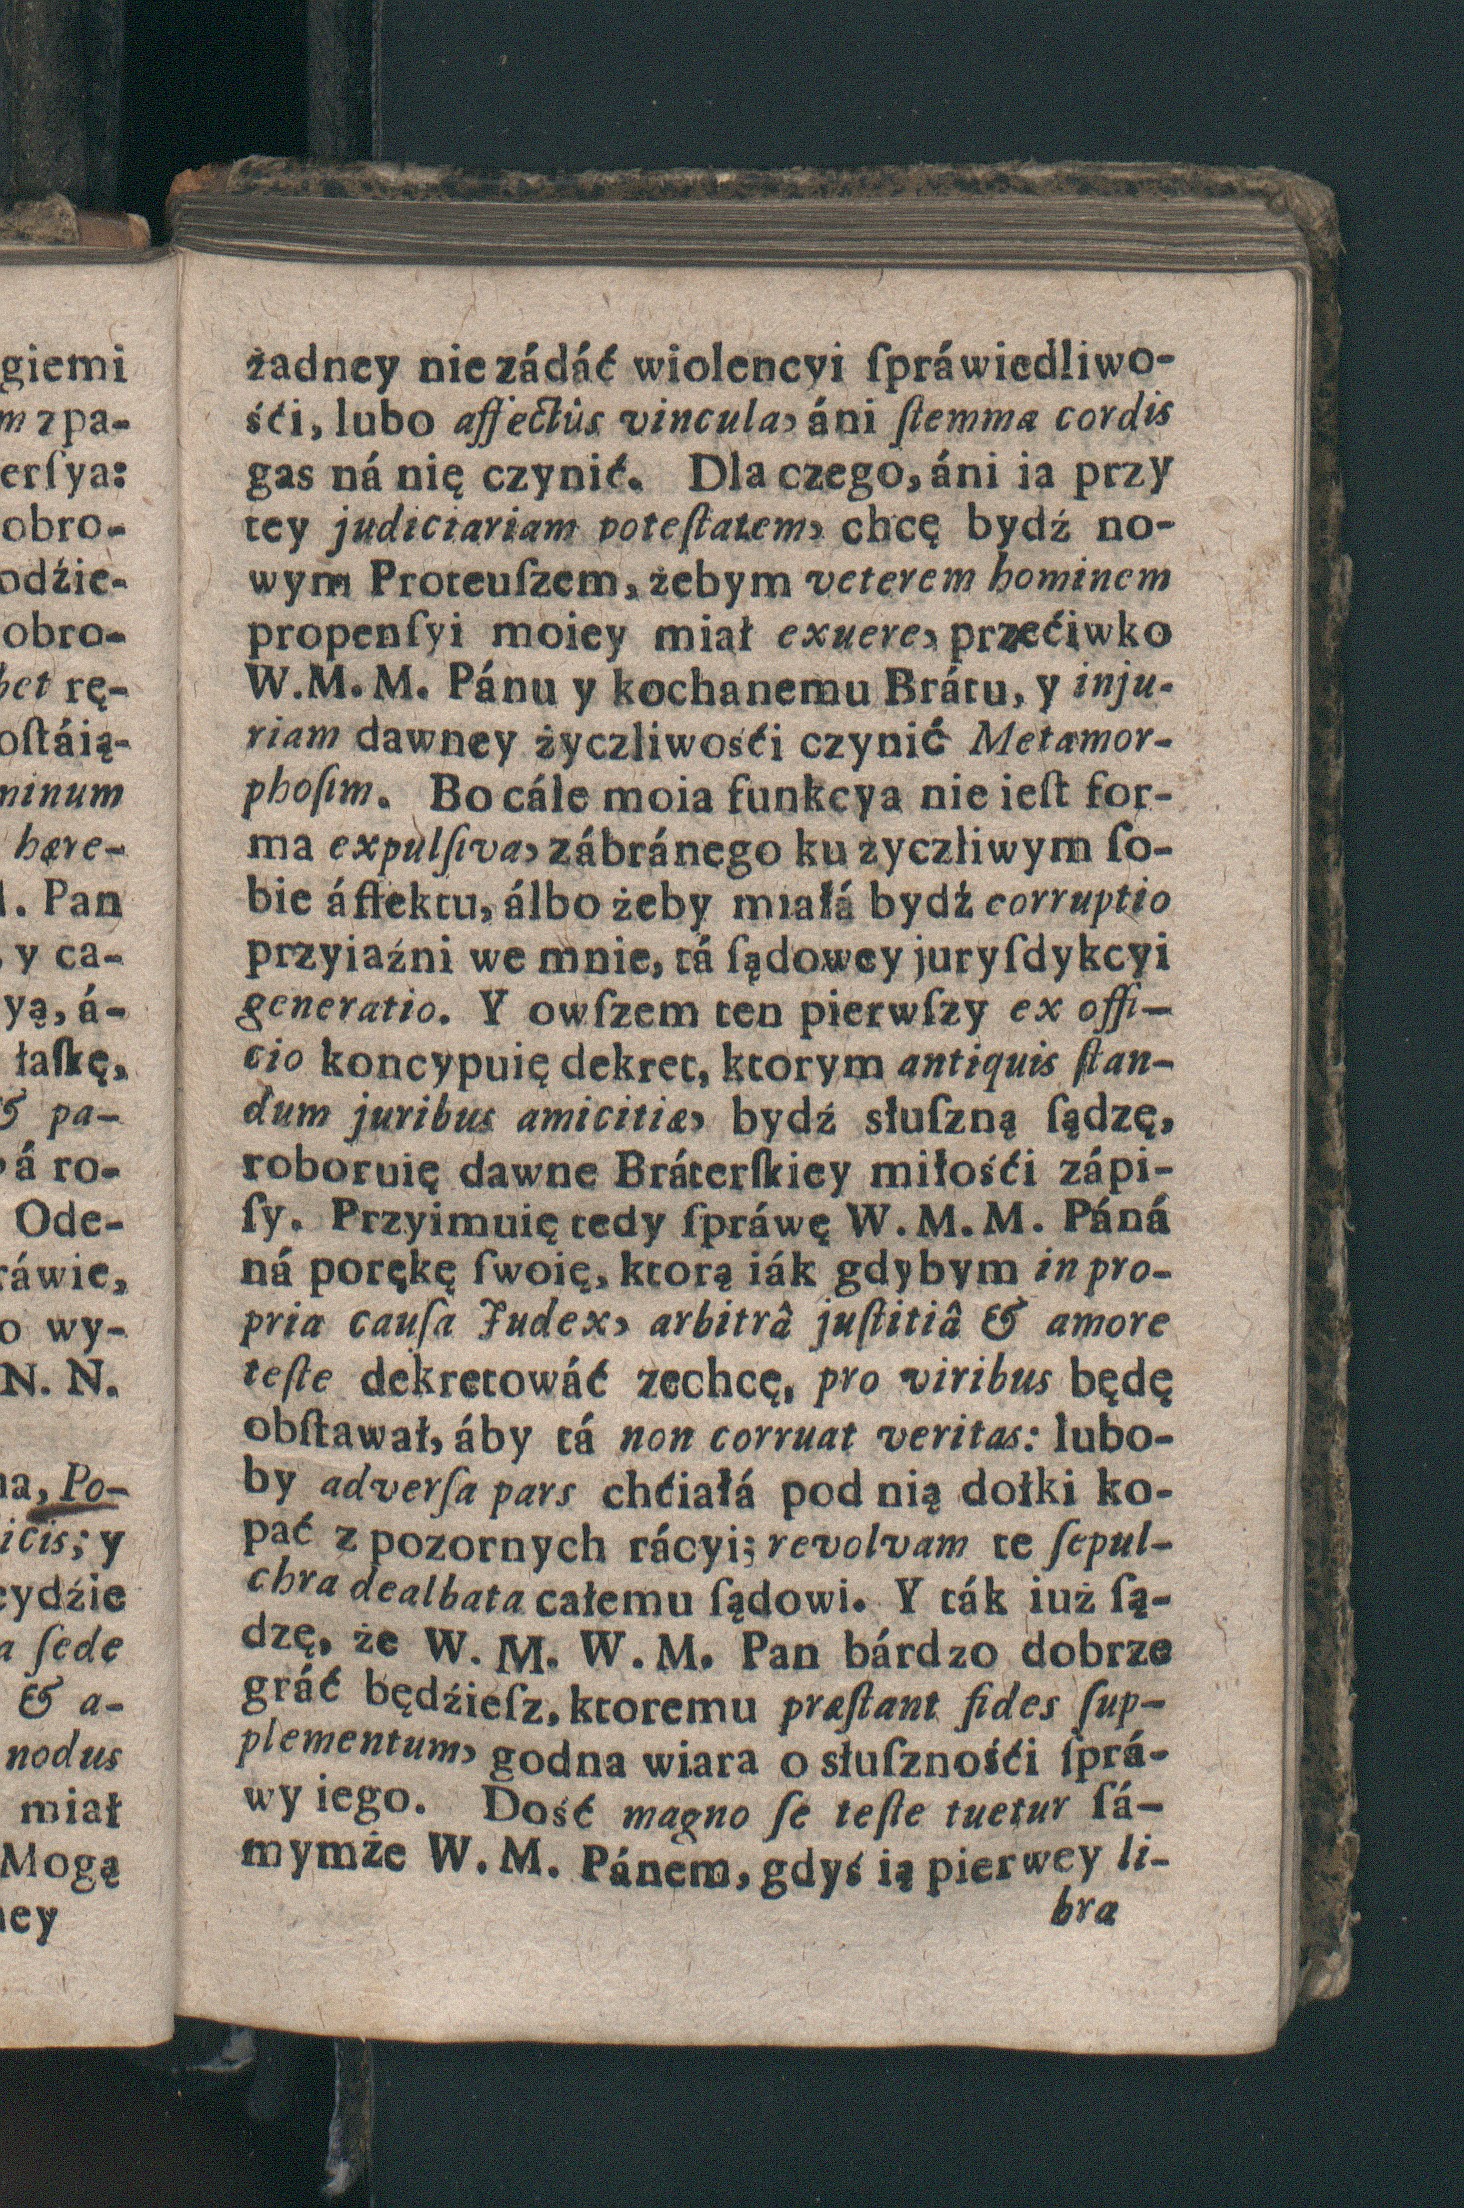 giemi
m z pa-
erſya:
obro-
odźie-
obro-
bet rę-
oſtáią-
minum
hære-
. Pan
y ca-
yą, á-
łaſkę,
& pa-
á ro-
Ode-
ráwie,
o wy-
N. N.
na, Po-
icis; y
eydźie
a ſede
& a-
nodus
miał
Mogą
ney
żadney nie zádáć wiolencyi ſpráwiedliwo-
śći, lubo affectûs vincula, áni ſtemma cordis
gas ná nię czynić. Dla czego, áni ia przy
tey judiciariam poteſtatem, chcę bydź no-
wym Proteuſzem, żebym veterem hominem
propenſyi moiey miał exuere, przećiwko
W.M.M. Pánu y kochanemu Brátu, y inju-
riam dawney życzliwośći czynić Metamor-
phoſim. Bo cále moia funkcya nie ieſt for-
ma expulſiva, zábránego ku życzliwym ſo-
bie áffektu, álbo żeby miałá bydź corruptio
przyiaźni we mnie, tá ſądowey juryſdykcyi
generatio. Y owſzem ten pierwſzy ex offi-
cio koncypuię dekret, ktorym antiquis ſtan-
dum juribus amicitiæ, bydź słuſzną ſądzę,
roboruię dawne Bráterſkiey miłośći zápi-
ſy. Przyimuię tedy ſpráwę W.M.M. Páná
ná porękę ſwoię, ktorą iák gdybym in pro-
pria cauſa Judex, arbitrâ juſtitiâ & amore
teſte dekretowáć zechcę, pro viribus będę
obſtawał, áby tá non corruat veritas: lubo-
by adverſa pars chćiałá pod nią dołki ko-
pać z pozornych rácyi; revolvam te ſepul-
chra dealbata całemu ſądowi. Y ták iuż ſą-
dzę, że W. M. W. M. Pan bárdzo dobrze
gráć będźieſz, ktoremu præſtant fides ſup-
plementum, godna wiara o słuſznośći ſprá-
wy iego. Dość magno ſe teſte tuetur ſá-
mymże W. M. Pánem, gdyś ią pierwey li-
bra